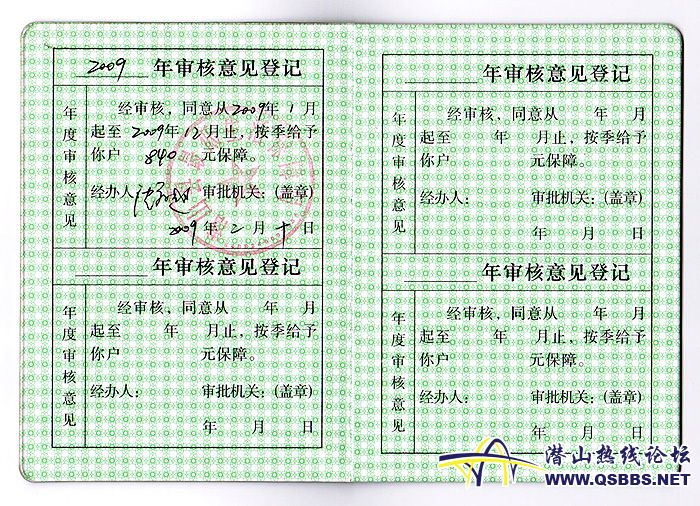 2009 年审核意见登记
年度审核意见
经审核，同意从2009年1月
起至2009年12月止，按季给予
你户 840 元保障。
经办人： 审批机关：（盖章）
2009年二月十日
年审核意见登记
年度审核意见
经审核，同意从 年 月
起至 年 月止，按季给予
你户 元保障。
经办人： 审批机关：（盖章）
年 月 日
年审核意见登记
年度审核意见
经审核，同意从 年 月
起至 年 月止，按季给予
你户 元保障。
经办人： 审批机关：（盖章）
年 月 日
年审核意见登记
年度审核意见
经审核，同意从 年 月
起至 年 月止，按季给予
你户 元保障。
经办人： 审批机关：（盖章）
年 月 日
潜山热线论坛
WWW.QSBBS.NET